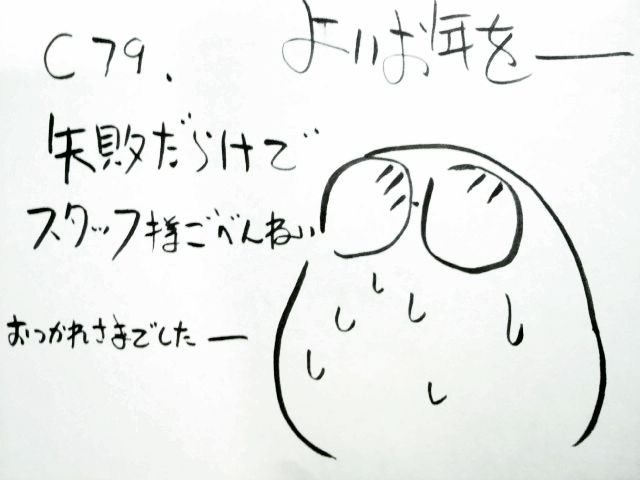 C79、
よいお年をー
失敗だらけで
スタッフ様ごべんねい
おつかれさまでしたー